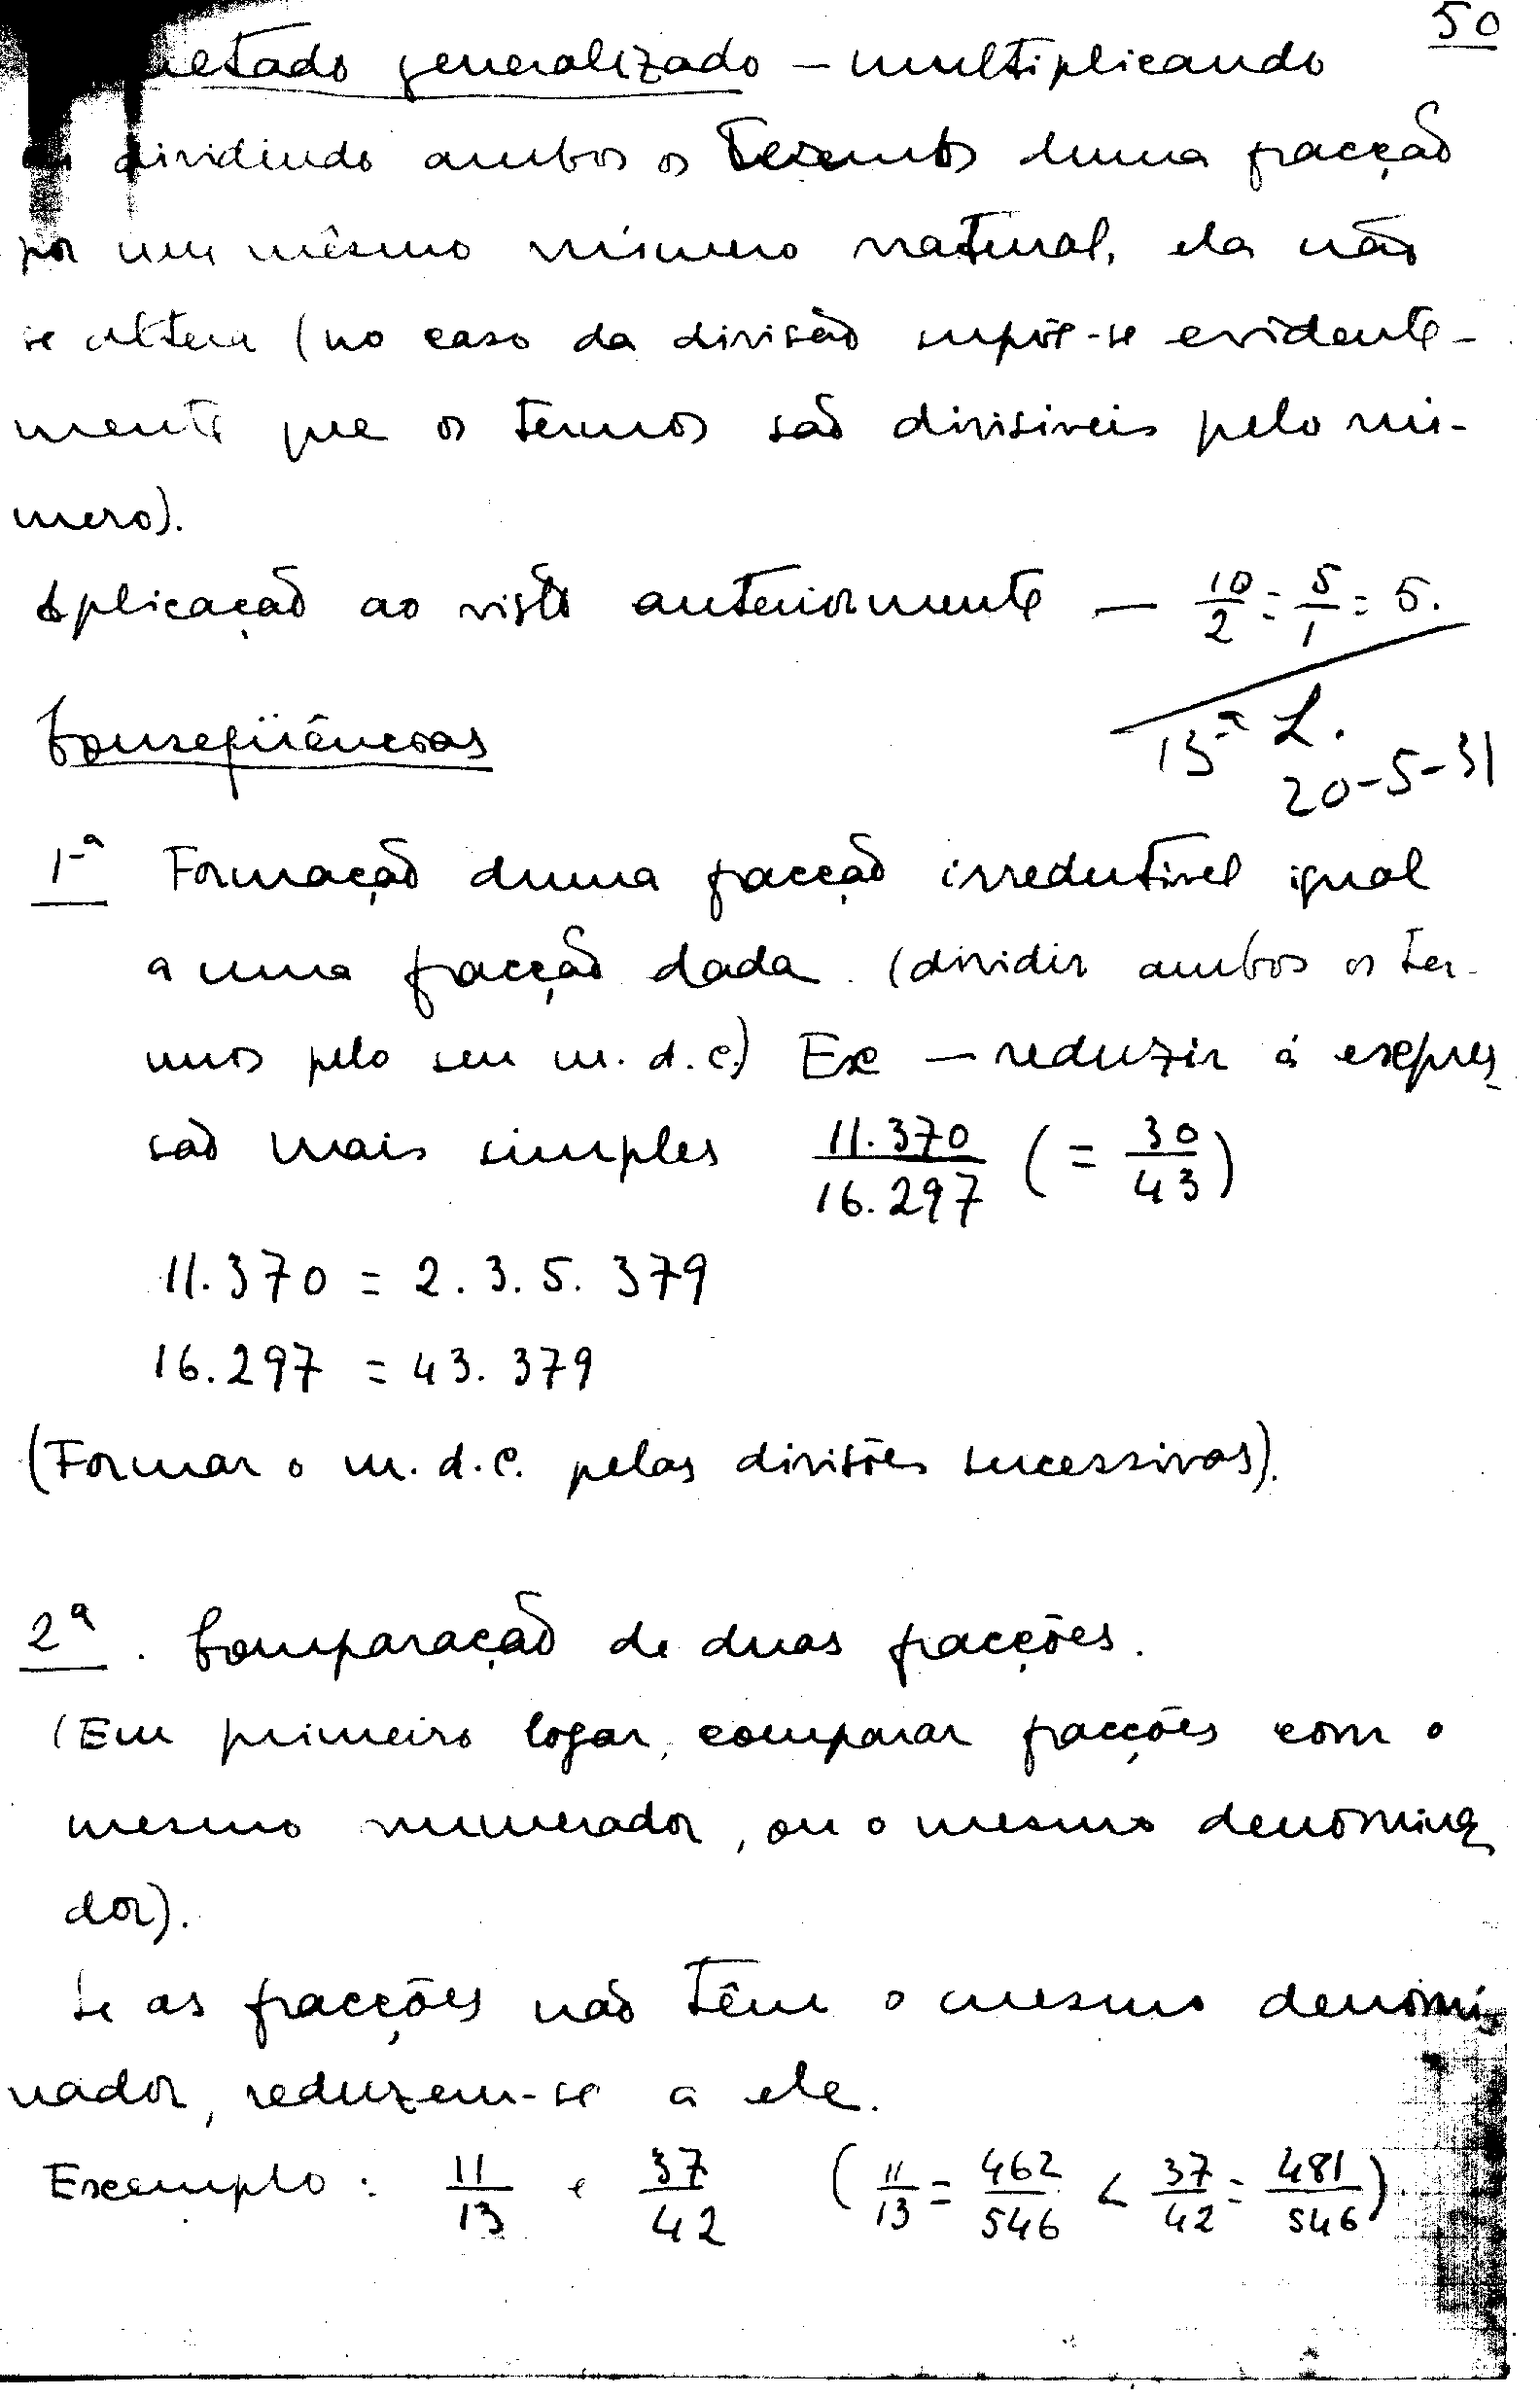 50
generalizado – multiplicando
dividindo ambos os termos duma fracção
por um mesmo número natural, ela não
se altera (no caso da divisão supõe-se evidente-
mente que os termos são divisíveis pelo nú-
mero).
Aplicação ao visto anteriormente — 10/2 = 5/1 = 5.
13ª L.
20-5-31
Conseqüências
1ª Formação duma fracção irredutível igual
a uma fracção dada. (dividir ambos os ter-
mos pelo seu m.d.c.) Ex — reduzir á expres
são mais simples 11.370/16.297 (= 30/43)
11.370 = 2.3.5.379
16.297 = 43.379
(Formar o m.d.c. pelas divisões sucessivas).
2ª. Comparação de duas fracções.
(Em primeiro logar, comparar fracções com o
mesmo numerador, ou o mesmo denomina
dor).
Se as fracções não têm o mesmo denomi-
nador, reduzem-se a ele.
Exemplo: 11/13 e 37/42 (11/13 = 462/546 < 37/42 = 481/546)